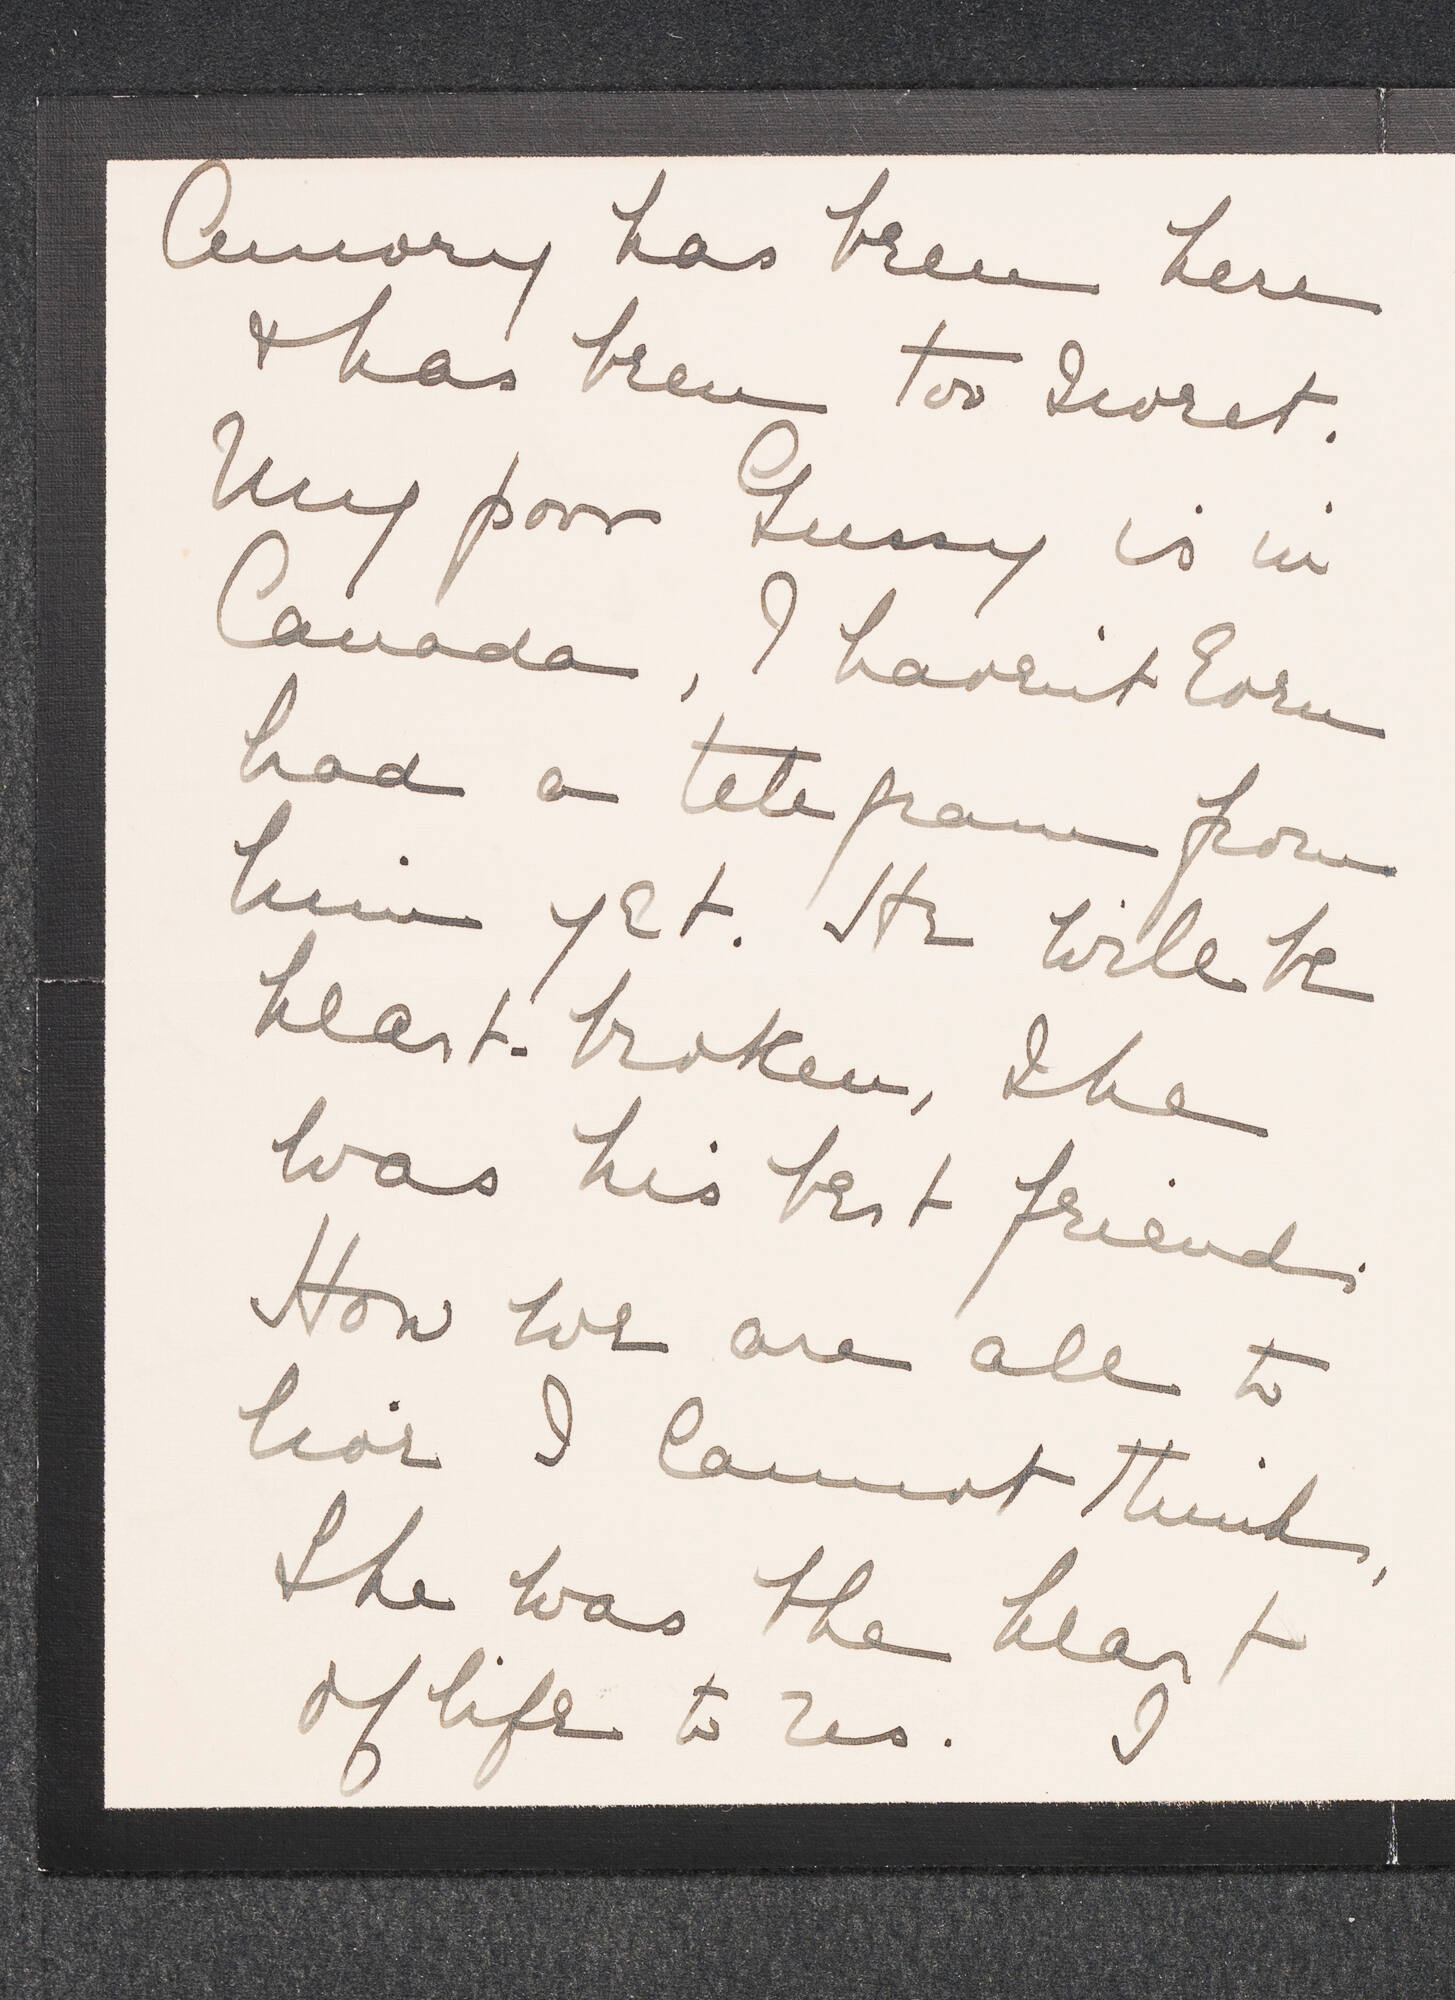 Amory has been here
& has been too sweet.
My poor Gussy is in
Canada, I haven't even
had a telegram from
him yet. He will be
heart-broken, She
was his best friend.
How we are all to
live I cannot think,
She was the heart
of life to us. I